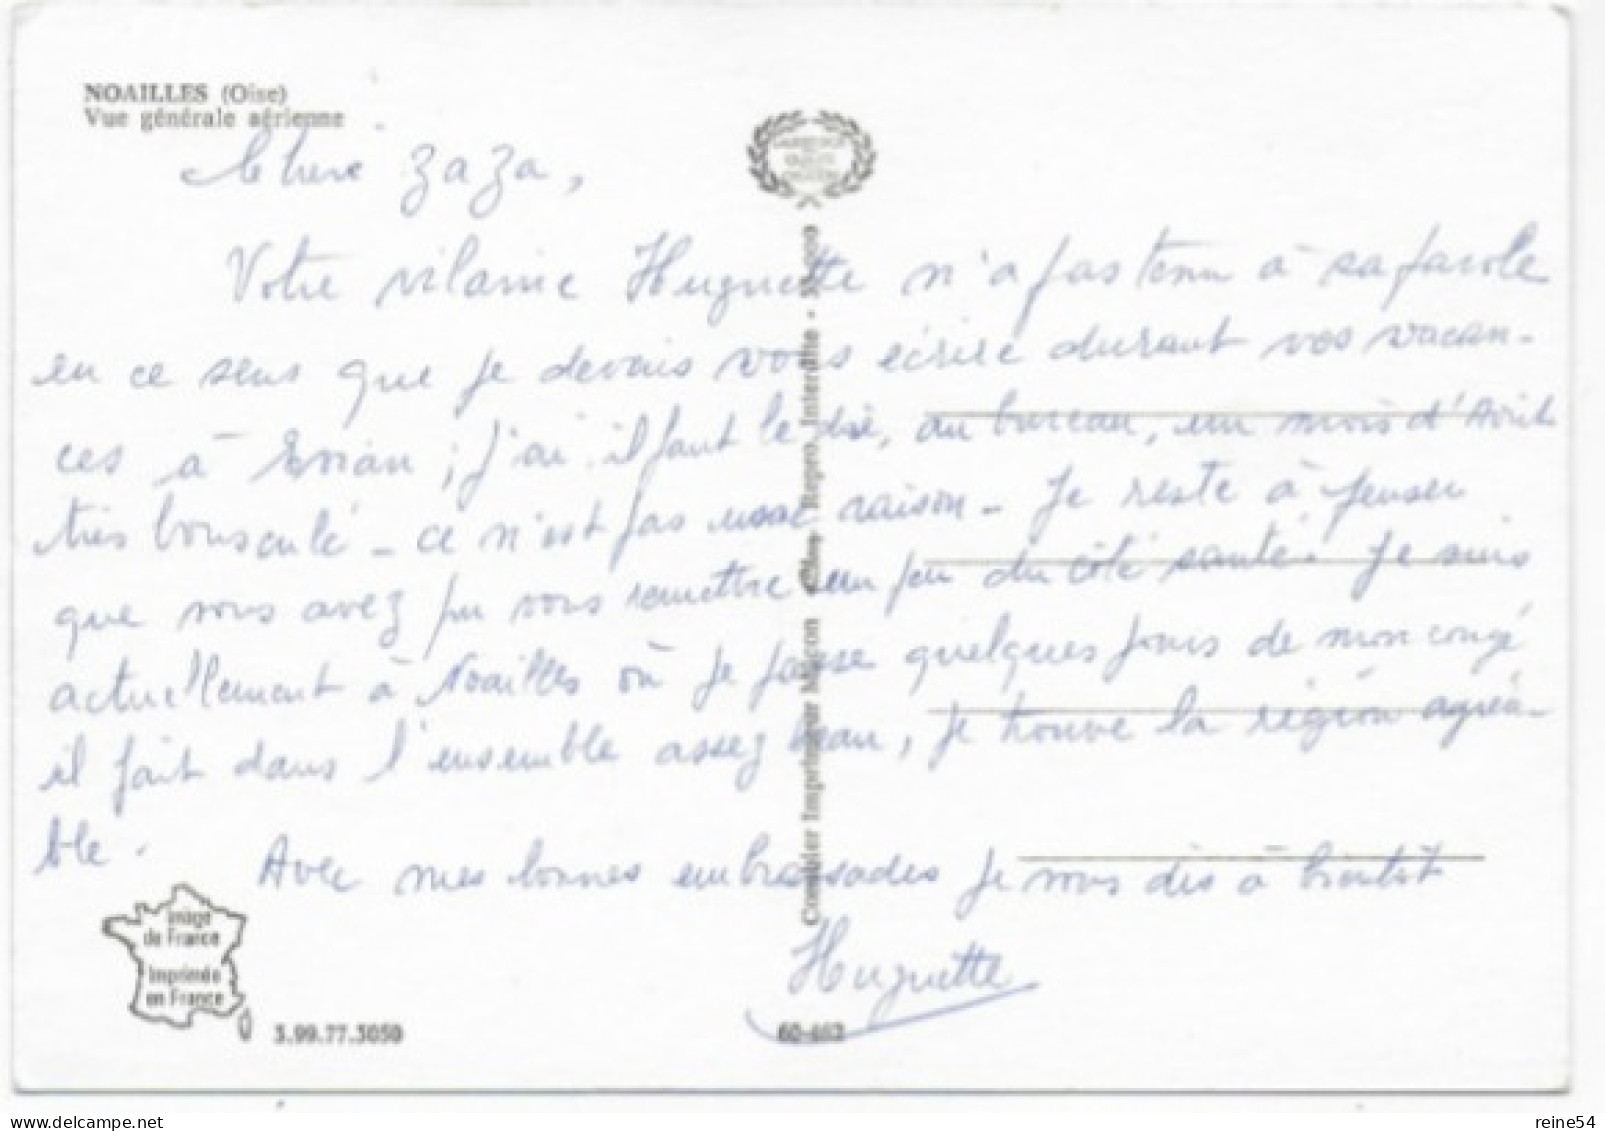 NOAILLES (Oise)
Vue générale aérienne
Chère Zaza,
Votre vilaine Huguette n'a pas tenu à sa parole
en ce sens que je devais vous écrire durant vos vacan-
ces à Evian ; j'ai il faut le dire, au bureau, un mois d'Août
très bousculé - ce n'est pas une raison - Je reste à penser
que vous avez pu vous remettre un peu du côté santé. Je suis
actuellement à Noailles où je passe quelques jours de mon congé
il fait dans l'ensemble assez beau, je trouve la région agréa-
ble.
Avec mes bonnes embrassades je vous dis à bientôt
Huguette
Combier Imprimeur Mâcon Repro. Interdite
Image
de France
Imprimée
en France
3.99.77.3050
60-462
www.delcampe.net
reine54